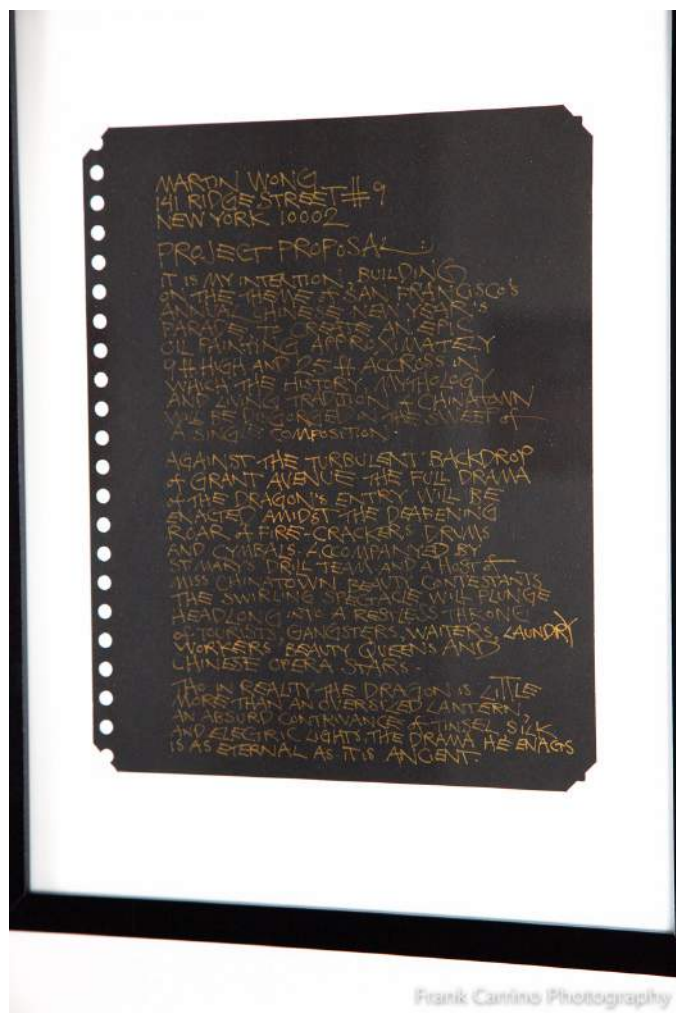 MARTIN WONG
141 RIDGE STREET # 9
NEW YORK 10002
PROJECT PROPOSAL:
IT IS MY INTENTION, BUILDING
ON THE THEME of SAN FRANCISCO'S
ANNUAL CHINESE NEW YEAR'S
PARADE TO CREATE AN EPIC
OIL PAINTING APPROXIMATELY
9 ft HIGH AND 25 ft ACCROSS IN
WHICH THE HISTORY, MYTHOLOGY
AND LIVING TRADITION of CHINATOWN
WILL BE DISGORGED IN THE SWEEP of
A SINGLE COMPOSITION.
AGAINST THE TURBULENT BACKDROP
of GRANT AVENUE THE FULL DRAMA
of THE DRAGON'S ENTRY WILL BE
ENACTED AMIDST THE DEAFENING
ROAR of FIRE-CRACKERS DRUMS
AND CYMBALS. ACCOMPANYED BY
ST MARY'S DRILL TEAM AND A HOST of
MISS CHINATOWN BEAUTY CONTESTANTS
THE SWIRLING SPECTACLE WILL PLUNGE
HEADLONG INTO A RESTLESS THRONG
of TOURISTS, GANGSTERS, WAITERS, LAUNDRY
WORKERS BEAUTY QUEENS AND
CHINESE OPERA STARS.
THO IN REALITY THE DRAGON IS LITTLE
MORE THAN AN OVERSIZED LANTERN,
AN ABSURD CONTRIVANCE of TINSEL, SILK
AND ELECTRIC LIGHTS. THE DRAMA HE ENACTS
IS AS ETERNAL AS IT IS ANCIENT.
Frank Carrino Photography